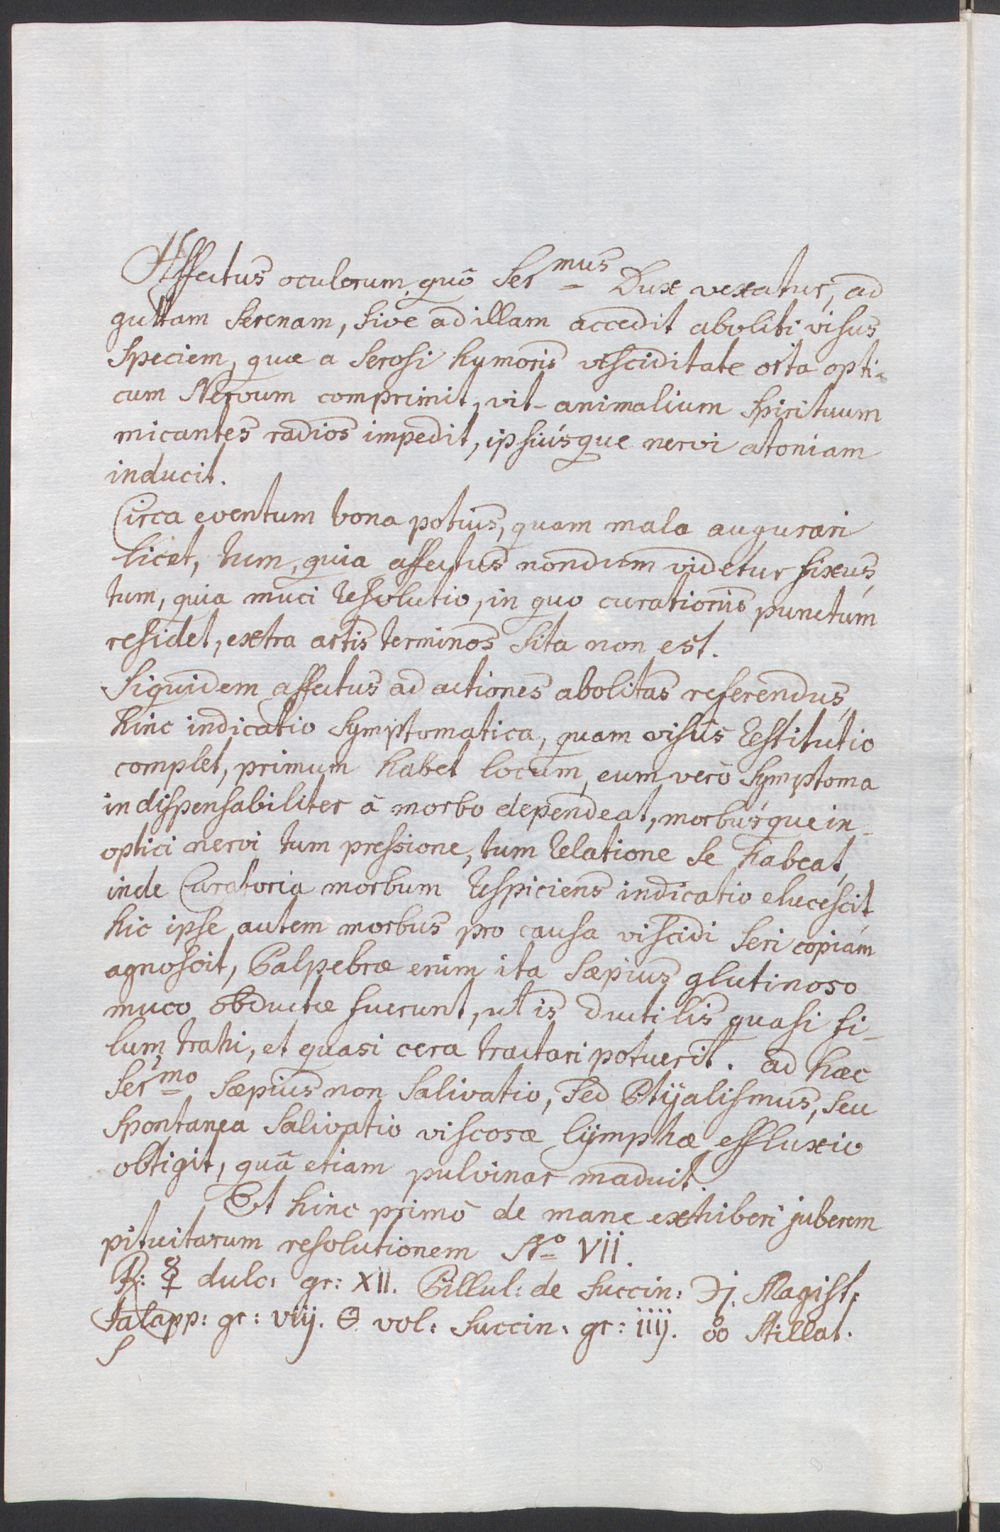 Affectus oculorum, quô Ser mus Dux vexatur, ad
guttam Serenam, sive ad illam accedit aboliti visus
Speciem, quæ a Serosi humoris visciditate orta opti-
cum Nervum comprimit, vit- animalium Spirituum
micantes radios impedit, ipsiusque nervi atoniam
inducit.
Circa eventum bona potius, quam mala augurari
licet, tum, quia affectus nondum videtur fixus,
tum, quia muci resolutio, in quo curationis punctum
residet, extra artis terminos sita non est.
Siquidem affectus ad actiones abolitas referendus,
hinc indicatio Symptomatica, quam visus restitutio
complet, primum habet locum, cum verò Symptoma
indispensabiliter â morbo dependeat, morbusque in
optici nervi tum pressione, tum relatione se habeat,
inde Curatoria morbum respiciens indicatio elucescit
hic ipse autem morbus pro causa viscidi Seri copiam
agnoscit, Palpebræ enim ita Sæpius glutinoso
muco obductæ fuerunt, ut is ductilis quasi fi-
lum trahi, et quasi cera tractari potuerit. ad hæc
Ser mo Sæpius non Salivatio, Sed Ptijalismus, seu
Spontanea Salivatio viscosæ lijmphæ effluxio
obtigit, quâ etiam pulvinar maduit.
Et hinc primò de mane exhiberi juberem
pituitarum resolutionem No VII.
℞: ☿ dulc: gr: XII. Pillul: de Succin: ℈j. Magist:
Jalapp: gr: viij. ⊖ vol: Succin: gr: iiij. Stillat.